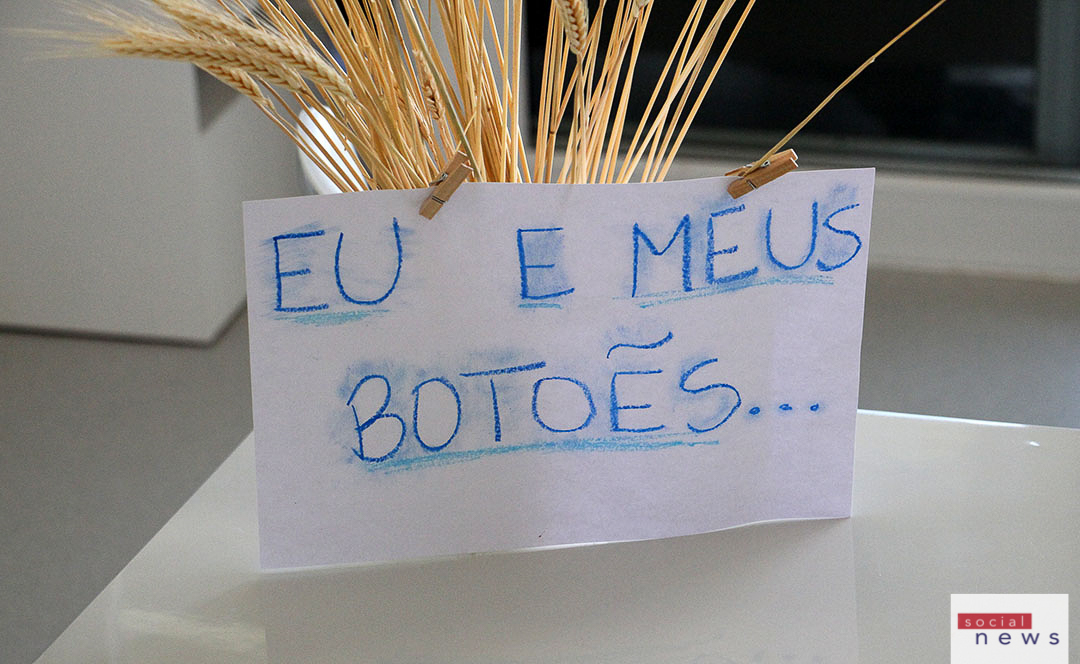 EU E MEUS
BOTOẼS...
social
news